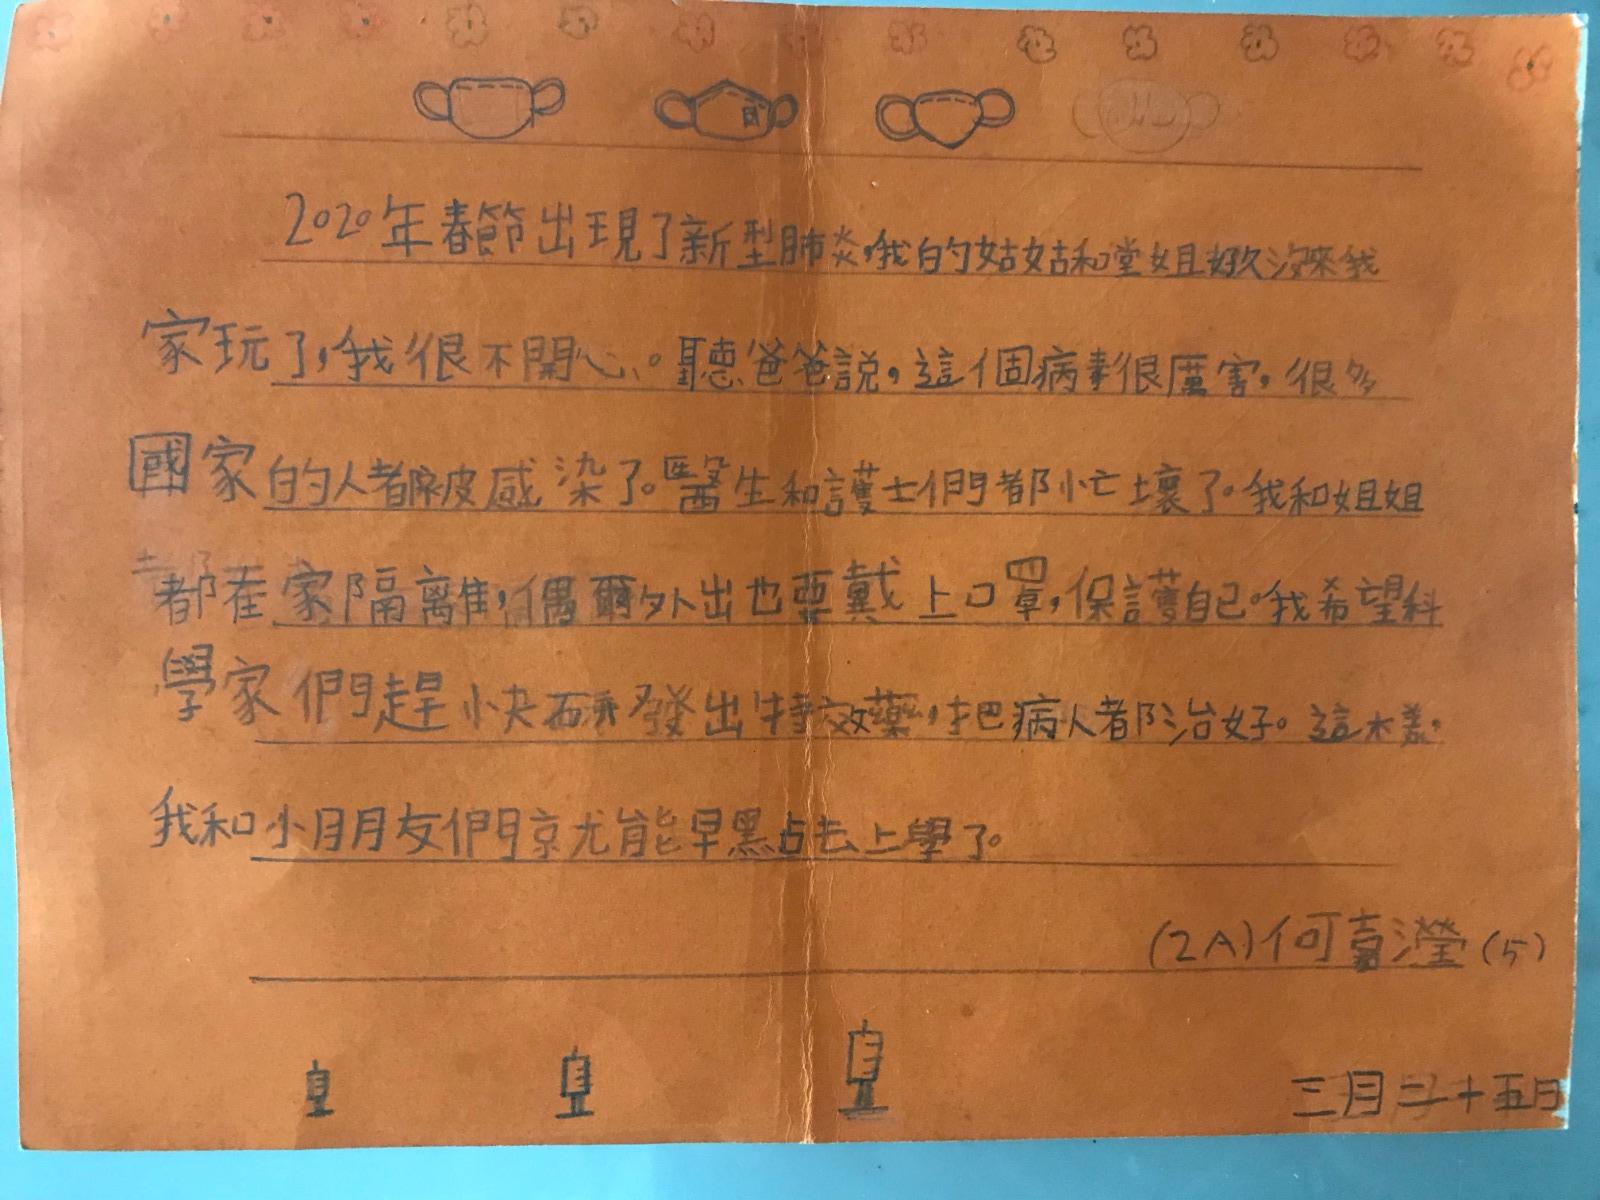 2020年春節出現了新型肺炎，我的姑姑和堂姐好久沒來我
家玩了，我很不開心。聽爸爸説，這個病毒很厲害，很多
國家的人都被感染了。醫生和護士們都忙壞了。我和姐姐
都在家隔離，偶爾外出也要戴上口罩，保護自己。我希望科
學家們趕快研發出特效藥，把病人都治好。這樣，
我和小朋友們就能早點去上學了。
(2A)何嘉瀅(5)
三月二十五日